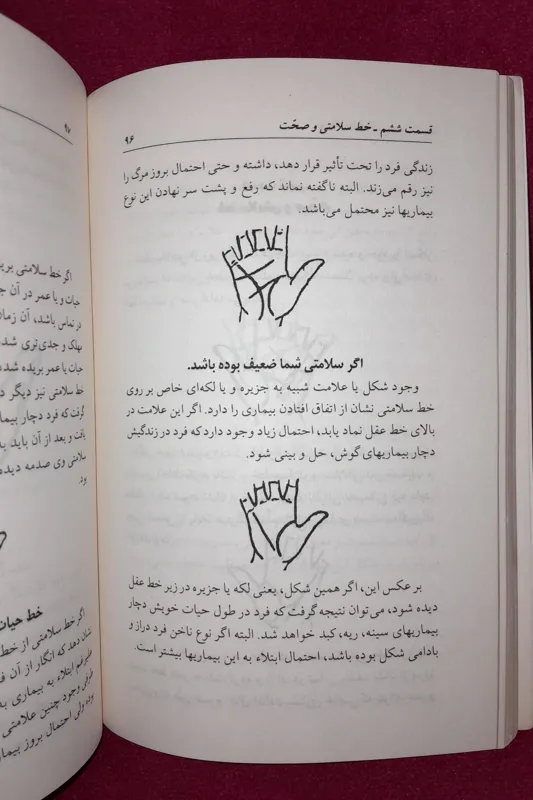 قسمت ششم ـ خط سلامتی و صحّت
۹۶
زندگی فرد را تحت تأثیر قرار دهد، داشته و حتی احتمال بروز مرگ را
نیز رقم می‌زند. البته ناگفته نماند که رفع و پشت سر نهادن این نوع
بیماریها نیز محتمل می‌باشد.
اگر سلامتی شما ضعیف بوده باشد.
وجود شکل یا علامت شبیه به جزیره و یا لکه‌ای خاص بر روی
خط سلامتی نشان از اتفاق افتادن بیماری را دارد. اگر این علامت در
بالای خط عقل نماد یابد، احتمال زیاد وجود دارد که فرد در زندگیش
دچار بیماریهای گوش، حل و بینی شود.
بر عکس این، اگر همین شکل، یعنی لکه یا جزیره در زیر خط عقل
دیده شود، می‌توان نتیجه گرفت که فرد در طول حیات خویش دچار
بیماریهای سینه، ریه، کبد خواهد شد. البته اگر نوع ناخن فرد دراز و
بادامی شکل بوده باشد، احتمال ابتلاء به این بیماریها بیشتر است.
۹۷
اگر خط سلامتی بریده
حیات و یا عمر در آن ج
در تماس باشد، آن زمان
مهلک و جدی‌تری شد
حیات یا عمر بریده شد
خط سلامتی نیز دیگر د
گرفت که فرد دچار بیما
یافت و بعد از آن باید به
سلامتی وی صدمه دیده
بود.
خط حیات
اگر خط سلامتی از خط
نشان دهد که انگار از آن ف
ابتلاء به بیماری به
وجود چنین علامتی
بوده ولی احتمال بروز بیمار